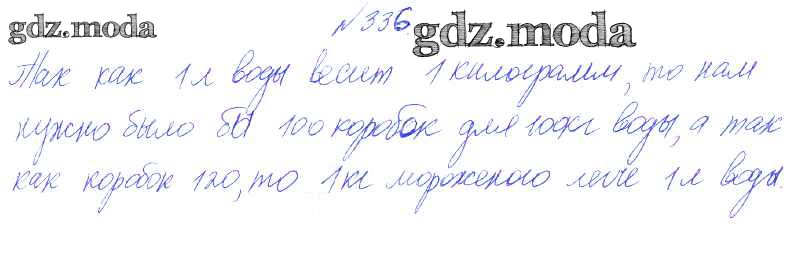 gdz.moda №336. gdz.moda
Так как 1 л воды весит 1 килограмм, то нам
нужно было бы 100 коробок для 100кг воды, а так
как коробок 120, то 1кг мороженого легче 1 л воды.